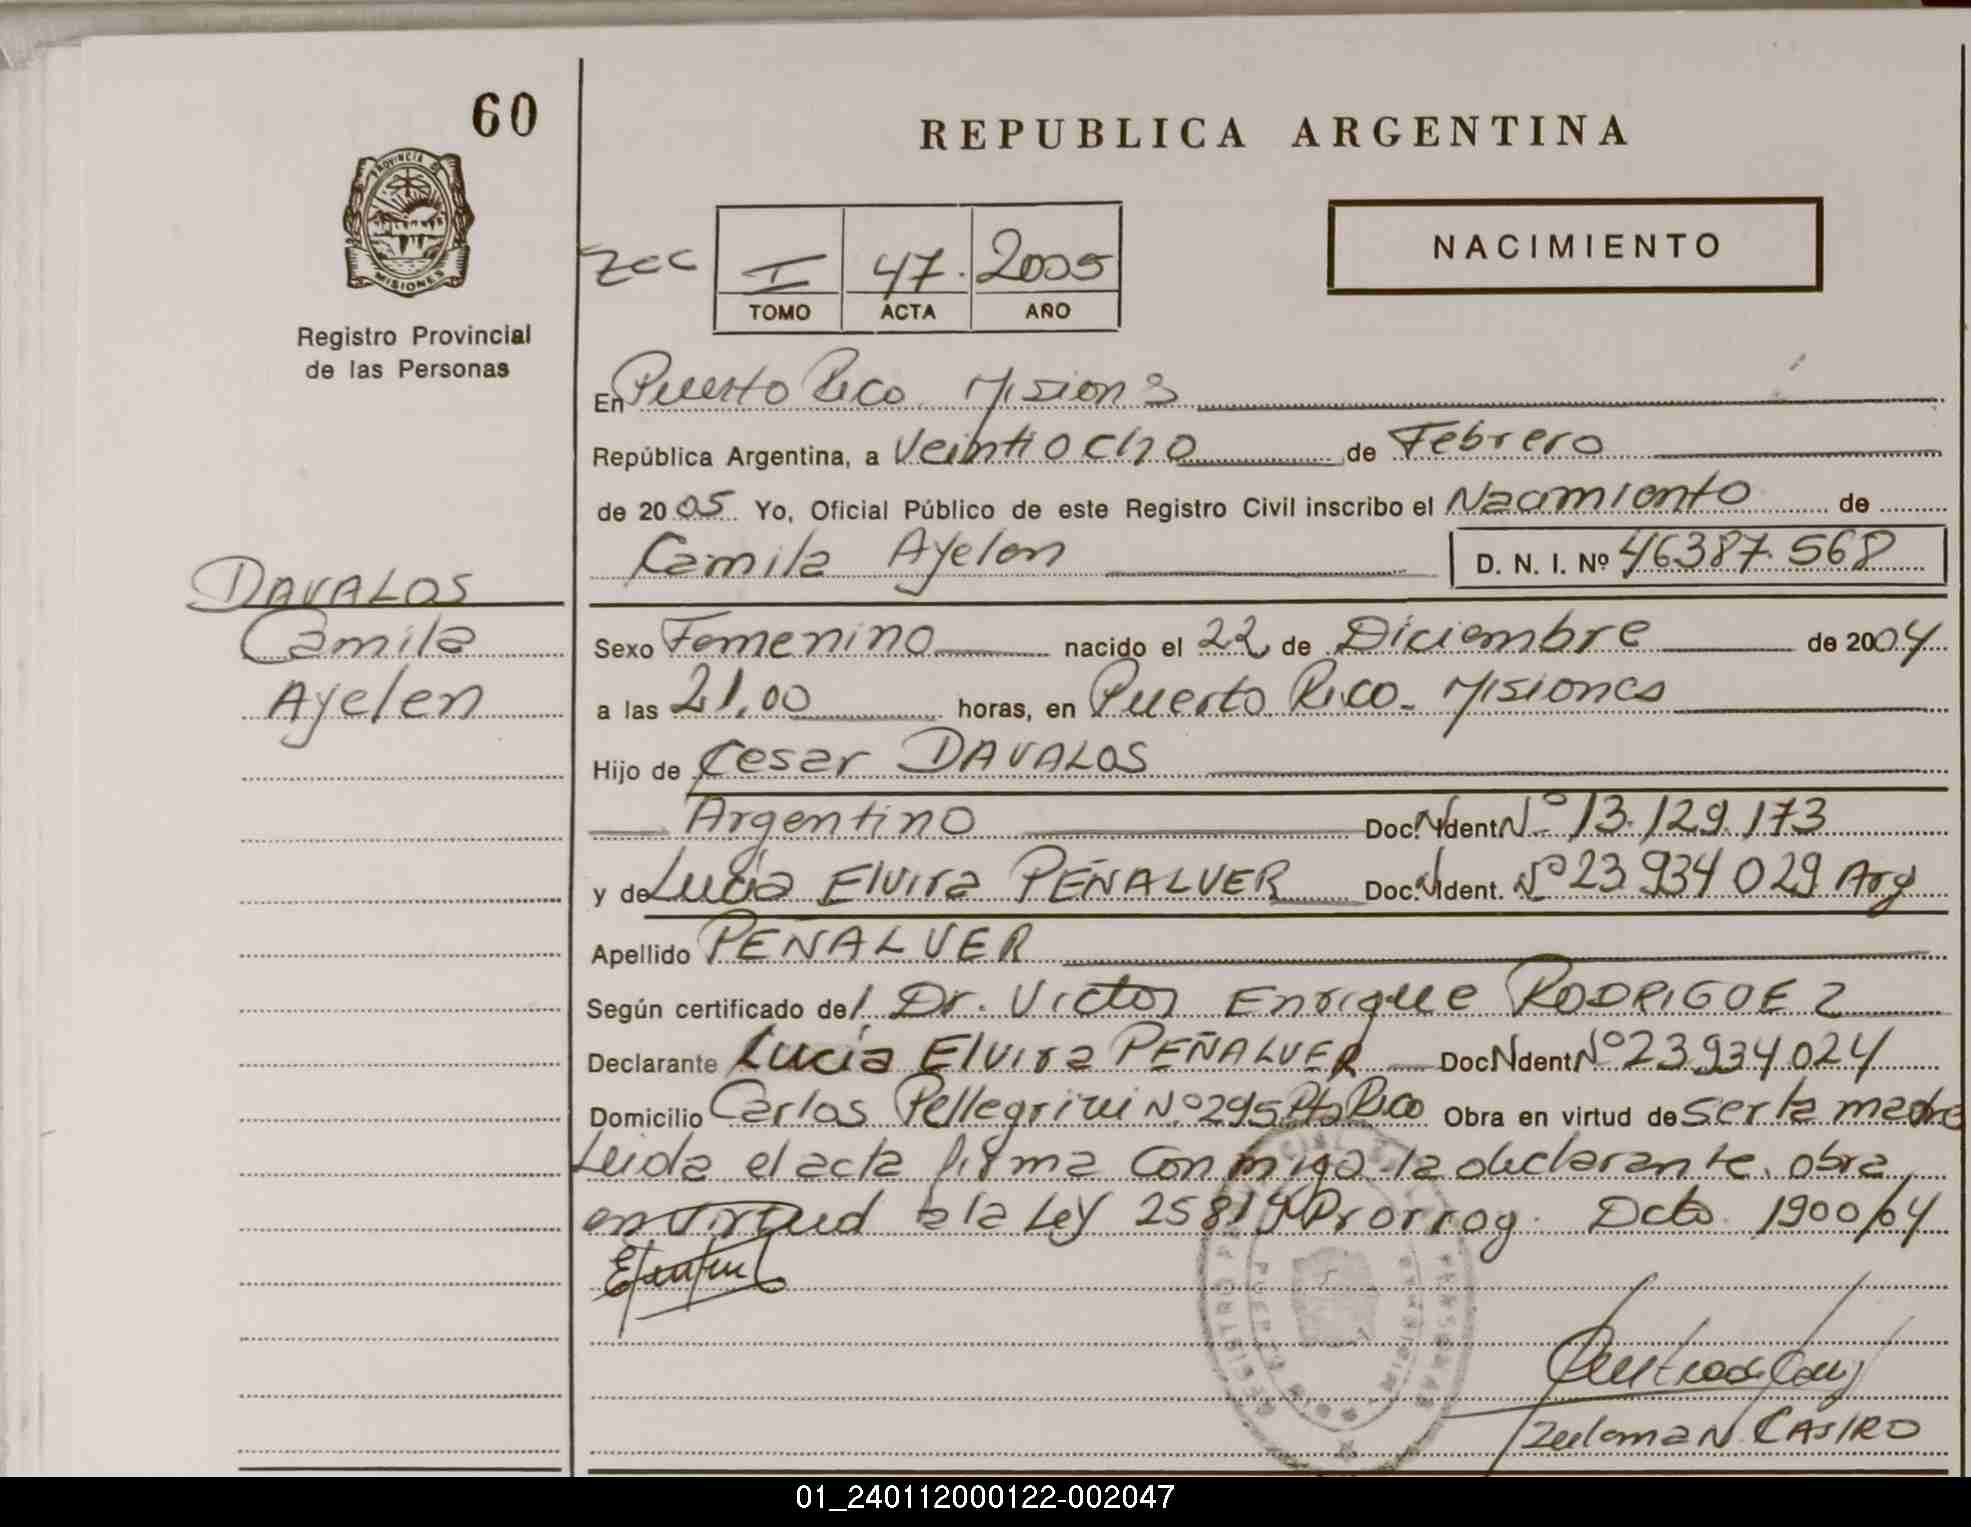 60
REPUBLICA ARGENTINA
PROVINCIA DE
MISIONES
Registro Provincial
de las Personas
NACIMIENTO
zcc I 47. 2005
TOMO ACTA AÑO
En Puerto Rico Misiones
República Argentina, a Veintiocho de Febrero
de 2005 Yo, Oficial Público de este Registro Civil inscribo el Nacimiento de
Camila Ayelen D. N. I. Nº 46387.568
DAVALOS
Camila
Ayelen
Sexo Femenino nacido el 22 de Diciembre de 2004
a las 21,00 horas, en Puerto Rico. Misiones
Hijo de Cesar DAVALOS
Argentino Doc. N Ident Nº 13.129.173
y de Lucia Elvira PEÑALVER Doc. N Ident. Nº 23 934 029 Arg
Apellido PEÑALVER
Según certificado del Dr. Victor Enrique RODRIGUEZ
Declarante Lucia Elvira PEÑALVER Doc N dent Nº 23.934.024
Domicilio Carlos Pellegrini Nº 295 Pto Rico Obra en virtud de ser la madre
Leida el acta firma conmigo la declarante. obra
en virtud a la Ley 25819 Prorrog. Dcto 1900/04
CASTRO
01_240112000122-002047